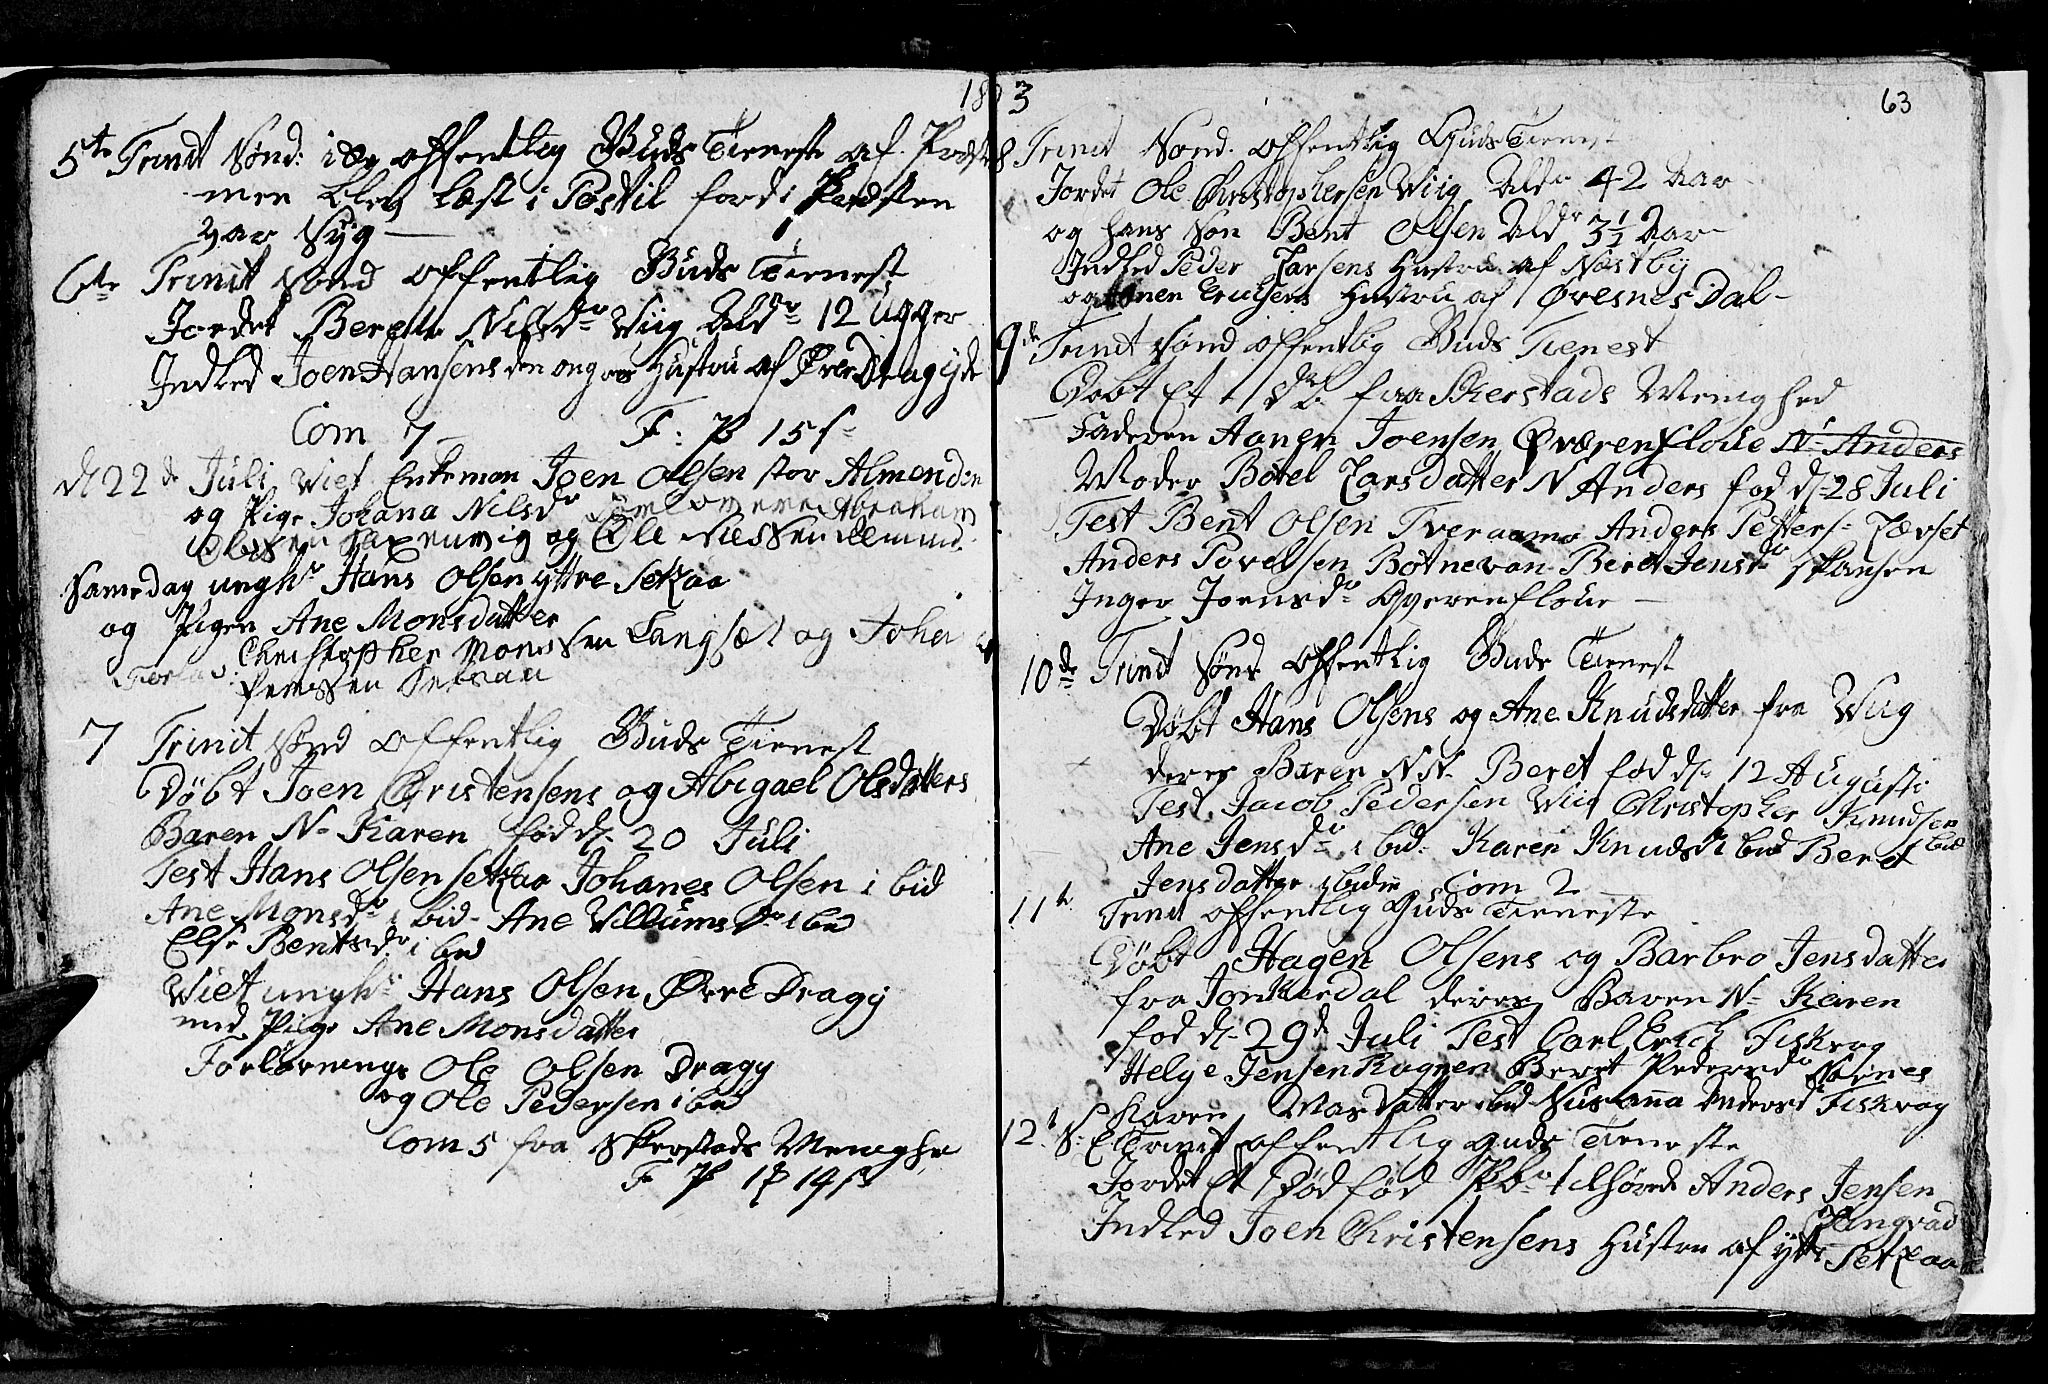 1803
5te Trinit Sønd: offentlig Guds Tieneste af
men blev læst i Postil fordi Præsten
var Syg
6te Trinit Sønd offentlig Guds Tienest
Jordet Nilsdr Wiig Aldr 12 Ugger
Indled Joen Hansens den onges Hustru af Øvre Dragyde
Com 7 F: P 15 s
d 22de Juli Viet Enkeman Joen Olsen stor Almenden
og Pige Johana Nilsdr Abraham
og Ole
Samedag unghr Hans Olsen yttre Setzaa
og Pigen Ane Monsdatter
Christopher Monssen Langset og
7 Trinit Sønd offentlig Guds Tienest
Døbt Joen Christensens og Abigael Olsdatters
Baren N. Karen fød d. 20 Juli
Test Hans Olsen Setzaa Johanes Olsen ibid
Ane Monsdr ibid Ane Villumsdr ibd
Else Bentsdr ibd
Viet unghr Hans Olsen Øvre Dragy
med Pige Ane Monsdatter
Forlovnings Ole Olsen Dragy
og Ole Pedersen ibd
Com 5 fra Skerstads Menighe
F P 14 s
63
8 Trinit Sønd. offentlig Guds Tienest
Jordet Ole Christophersen Wiig Aldr 42 Aar
og hans Søn Bent Olsen Aldr 3 1/2 Aar
Indled Peder Larsens Hustru af Næstby
og Hustru af Øvesnes Dal
9de Trinit Sønd offentlig Guds Tienest
Døbt Et fra Skerstads Menighed
Faderen Aanen Joensen Øværenfloue N. Anders
Moder Botel Larsdatter N Anders fød d. 28 Juli
Test Bent Olsen Tveraamo Anders Petters.
Anders Povelsen Botnevan Beret Jensdr Skansen
Inger Joensdr Øverenfloue
10de Trinit Sønd offentlig Guds Tienest
Døbt Hans Olsens og Ane Knudsdatter fra Wiig
deres Baren NN. Beret fød d. 12 Augusti
Test. Jacob Pedersen Wiig Christopher Knudsen ibid
Ane Jensdr ibid. Karen Knudsd ibid Beret
Jensdatter ibidm Com 2
11te Trinit offentlig Guds Tieneste
Døbt Hagen Olsens og Barbro Jensdatter
fra Jonkerdal deres Baren N. Karen
fød d. 29de Juli Test Carl Erich Fiskvog
Helge Jensen Rognen Beret Pedersdr
Karen Marsdatter ibid Susanna Andersd Fiskvog
12te S. E Trinit offentlig Guds Tieneste
Jordet Et Dødfød tilhørende Anders Jensen
Langvad
Indled Joen Christensens Hustru af ytt. Setzaa